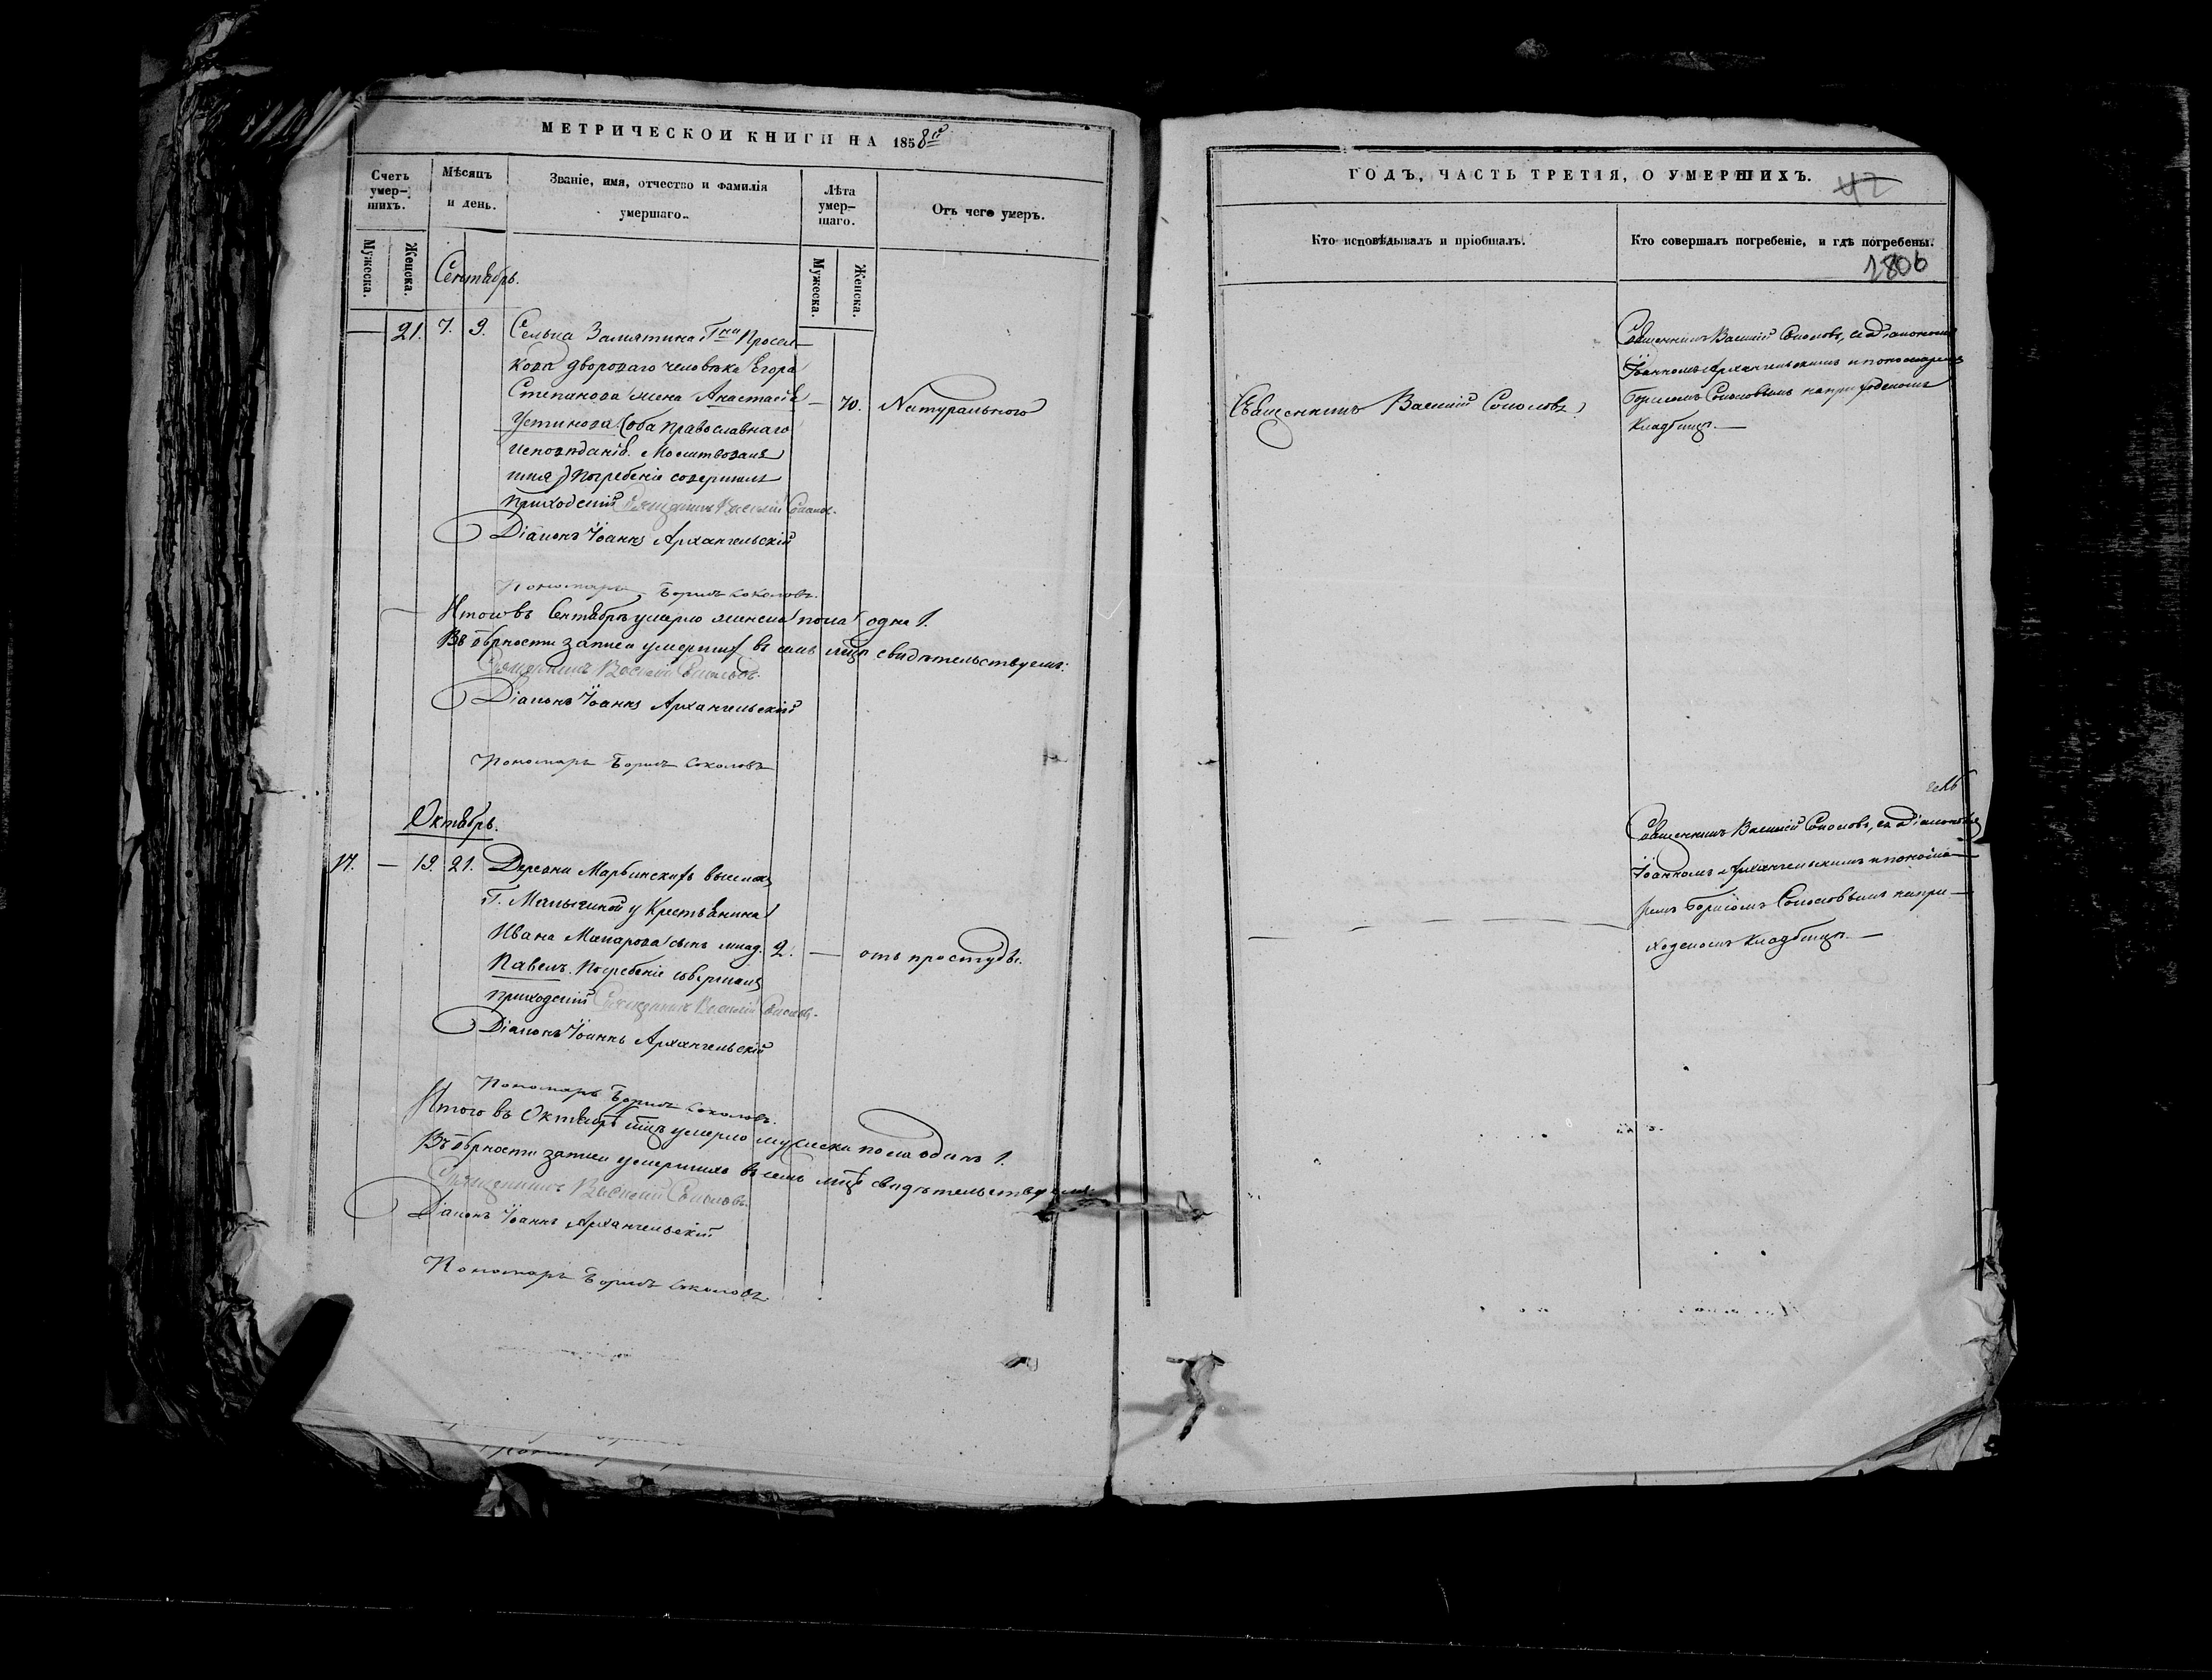 МЕТРИЧЕСКОЙ КНИГИ НА 1858й
Счетъ умер-шихъ.
Мѣсяцъ и день.
Званіе, имя, отчество и фамилія умершаго.
Лѣта умер-шаго.
Отъ чего умеръ.
Мужеска.
Женска.
Мужеска.
Женска.
Сентябрь.
— 21. 7. 9. Сельца Замятина Гна
кова двороваго человѣка Егора
Степанова жена Анастасія — 70. Натурального
Устинова (оба православнаго
исповѣданія.
) Погребеніе совершилъ
приходскій Священникъ Василій Соколовъ.
Діаконъ Іоаннъ Архангельскій
Пономарь Борисъ Соколовъ.
Итого въ Сентябрѣ умерло женска пола одна 1.
Въ вѣрности записи умершихъ въ семъ мцѣ свидѣтельствуемъ:
Священникъ Василій Соколовъ.
Діаконъ Іоаннъ Архангельскій
Пономарь Борисъ Соколовъ
Октябрь.
17. — 19. 21. Деревни Марьинскихъ
Г. Малыгиной у Крестьянина
Ивана Макарова сынъ млад. 2. — отъ простуды.
Павелъ. Погребеніе совершилъ
приходскій Священникъ Василій Соколовъ.
Діаконъ Іоаннъ Архангельскій
Пономарь Борисъ Соколовъ.
Итого въ Октябрѣ мцѣ умерло мужеска пола одинъ 1.
Въ вѣрности записи умершихъ въ семъ мцѣ свидѣтельствуемъ
Священникъ Василій Соколовъ.
Діаконъ Іоаннъ Архангельскій
Пономарь Борисъ Соколовъ.
ГОДЪ, ЧАСТЬ ТРЕТІЯ, О УМЕРШИХЪ.
42
Кто исповѣдывалъ и пріобщалъ.
Кто совершалъ погребеніе, и гдѣ погребены.
1806
Священникъ Василій Соколовъ
Священникъ Василій Соколовъ, съ Діакономъ
Іоанномъ Архангельскимъ и пономаремъ
Борисомъ Соколовымъ на приходскомъ
Кладбищѣ. —
Священникъ Василій Соколовъ, съ Діакономъ
Іоанномъ Архангельскимъ и понома-
ремъ Борисомъ Соколовымъ на при-
ходскомъ Кладбищѣ. —